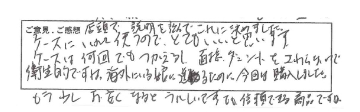 ご意見、ご感想 店頭で説明を読んでこれに決めました
ケースに入れて使うので、とてもいいと思います
ケースは何回でもつかえるし 直接 ダニットを さわらないので
衛生的ですね 海外にいる娘に 送るために 今回は購入しました
もう少しお安くなるとうれしいですが 信頼できる商品ですね